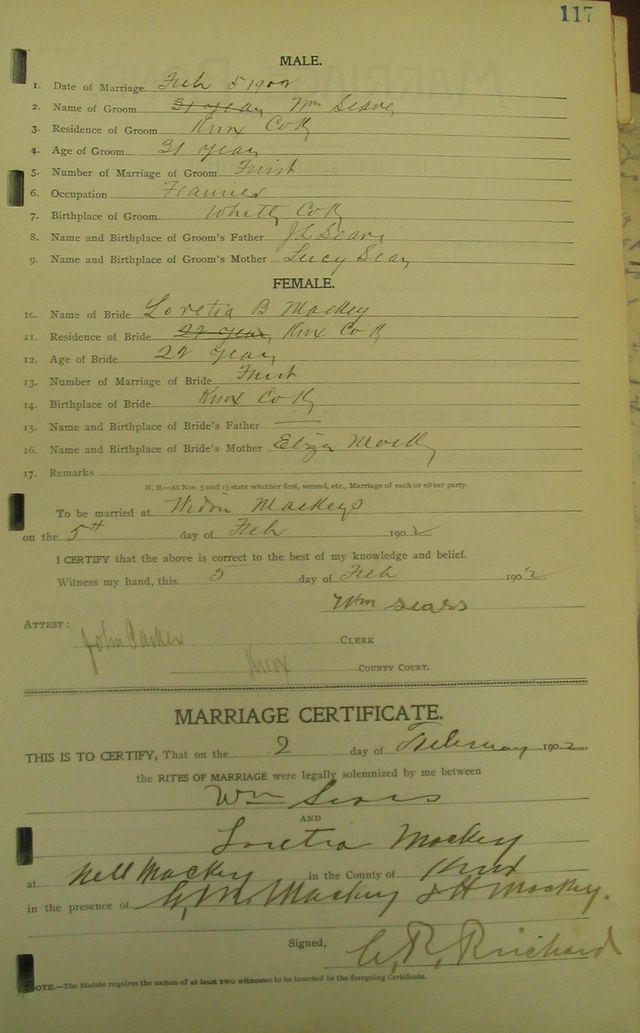 117
MALE.
1. Date of Marriage Feb 5 1902
2. Name of Groom 31 years Wm Sears
3. Residence of Groom Knox Co Ky
4. Age of Groom 31 years
5. Number of Marriage of Groom First
6. Occupation Farmer
7. Birthplace of Groom Whitly Co Ky
8. Name and Birthplace of Groom's Father J L Sears
9. Name and Birthplace of Groom's Mother Lucy Sears
FEMALE.
10. Name of Bride Loretia B Mackey
11. Residence of Bride 22 years Knox Co Ky
12. Age of Bride 22 years
13. Number of Marriage of Bride First
14. Birthplace of Bride Knox Co Ky
15. Name and Birthplace of Bride's Father
16. Name and Birthplace of Bride's Mother Eliza
17. Remarks
N. B.—At Nos. 5 and 13 state whether first, second, etc., Marriage of each or either party.
To be married at Mackeys
on the 5th day of Feb 1902
I CERTIFY that the above is correct to the best of my knowledge and belief.
Witness my hand, this 5 day of Feb 1902
Wm Sears
ATTEST:
John Parker CLERK
Knox COUNTY COURT.
MARRIAGE CERTIFICATE.
THIS IS TO CERTIFY, That on the 2 day of February 1902.
the RITES OF MARRIAGE were legally solemnized by me between
Wm Sears
AND
Loretia Mackey
at Mackey in the County of Knox
in the presence of G. M. Mackey J H Mackey.
Signed,
NOTE.—The Statute requires the names of at least TWO witnesses to be inserted in the foregoing Certificate.